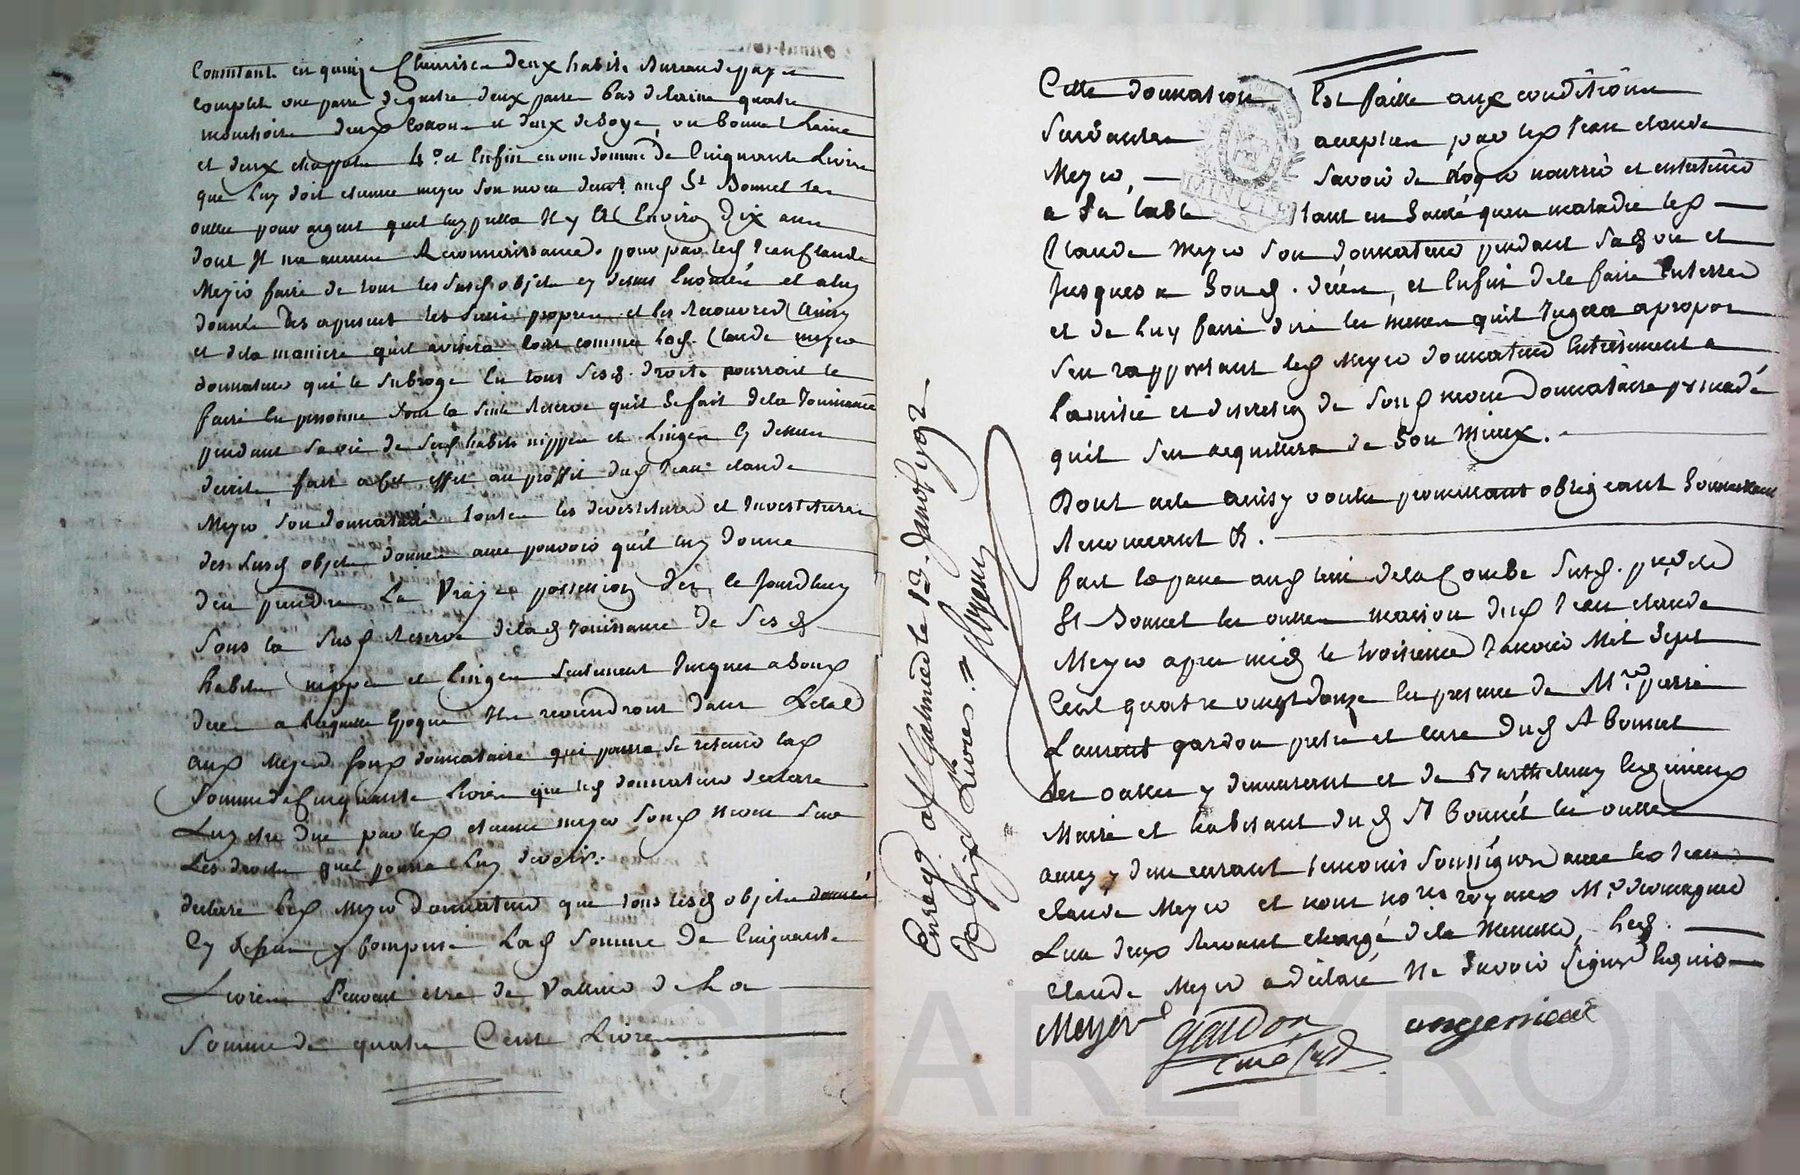 Consistant en quinze Chemise deux habits Bureau de paye
complet une paire de guetre deux paire bas de laine quatre
mouchoire deux Cotton et deux de Soye, un Bonnet Laine
et deux chappeau & et Enfin en une Somme de Cinquante Livre
que Luy doit etienne meyer Son neveu demt aud St Bonnet les
oulles pour argent quil luy prêta Il y a Environ dix ans
dont Il na aucune Reconnoissance, pour par led Jean Claude
Meyer faire de tout les Susd objets cy dessus Enoncés et a luy
donnée des apresent les Siens propres et les recouvrer Ainsy
et de la maniere quil avisera tout comme led. Claude meyer
donnateur qui le Subroge En tous Sesd. droits pourrait le
faire En personne Sous la Seule Reserve quil Se fait de la Jouissance
pendant Sa vie de Sesd habits nippes et Linges Cy dessus
decrits fait a Cet effet au proffit dud Jean Claude
Meyer Son donnataire toutes les devestitures et Investitures
des Susd objets donnés avec pouvoir quil luy donne
den prendre La Vraye possession des le Jourdhuy
Sous la Susd Reserve de lad Jouissance de Sesd
habits nippes et linges Seulement Jusques a Sond
deces a Laquelle Epoque Ils reviendront dans Letat
aud Meyer Sond donnataire qui pourra Se retenir lad
Somme de Cinquante Livres que led donnateur declare
Luy etre due par led etienne meyer Sond neveu Sauf
Les droits quil pourra Luy devoir.
declare led Meyer Donnateur que tous lesd objets donnés
Cy dessus y Compris Lad Somme de Cinquante
Livres Peuvent etre de Valleur de La
Somme de quatre Cent Livres
Cette donnation Est faitte aux conditions
Suivantes acceptées par led Jean claude
Meyer, Savoir de Loger nourrir et entretenir
a Sa table tant en Santé quen maladie led
Claude Meyer Son donnateur pendant Sad vie et
Jusques a Sond. décès, et Enfin de le faire Enterrer
et de Luy faire dire les messes quil Jugera apropos
Sen rapportant led Meyer donnateur Entierement a
Lamitié et discretion de Sond neveu donnataire persuadé
quil Sen acquittera de Son Mieux.
Dont acte ainsy voulu promettant obligeant Soumettant
Renonceant &.
fait le passé aud lieu de la Combe Susd. psse de
St Bonnet les oulles maison dud Jean claude
Meyer apres midy le troisieme Janvier Mil Sept
Cent quatre vingt douze En presence de Mre pierre
Laurent gardon pretre et curé dud St bonnet
les oulles y demeurant et de Barthelemy Engenieux
Maire et habitant dud St Bonnet les oulles
aussy y demeurant temoins Soussignés avec led Jean
claude Meyer et nous nores royaux Me
Lun deux Restant chargé de la Minutte, led.
claude Meyer a déclaré Ne Savoir Signer Enquis
Meyer
gardon
curé Susd
angenieux
Enregé. a St Galmier le 13. Janvr 1792
Livres
MINUTE
CHAREYRON